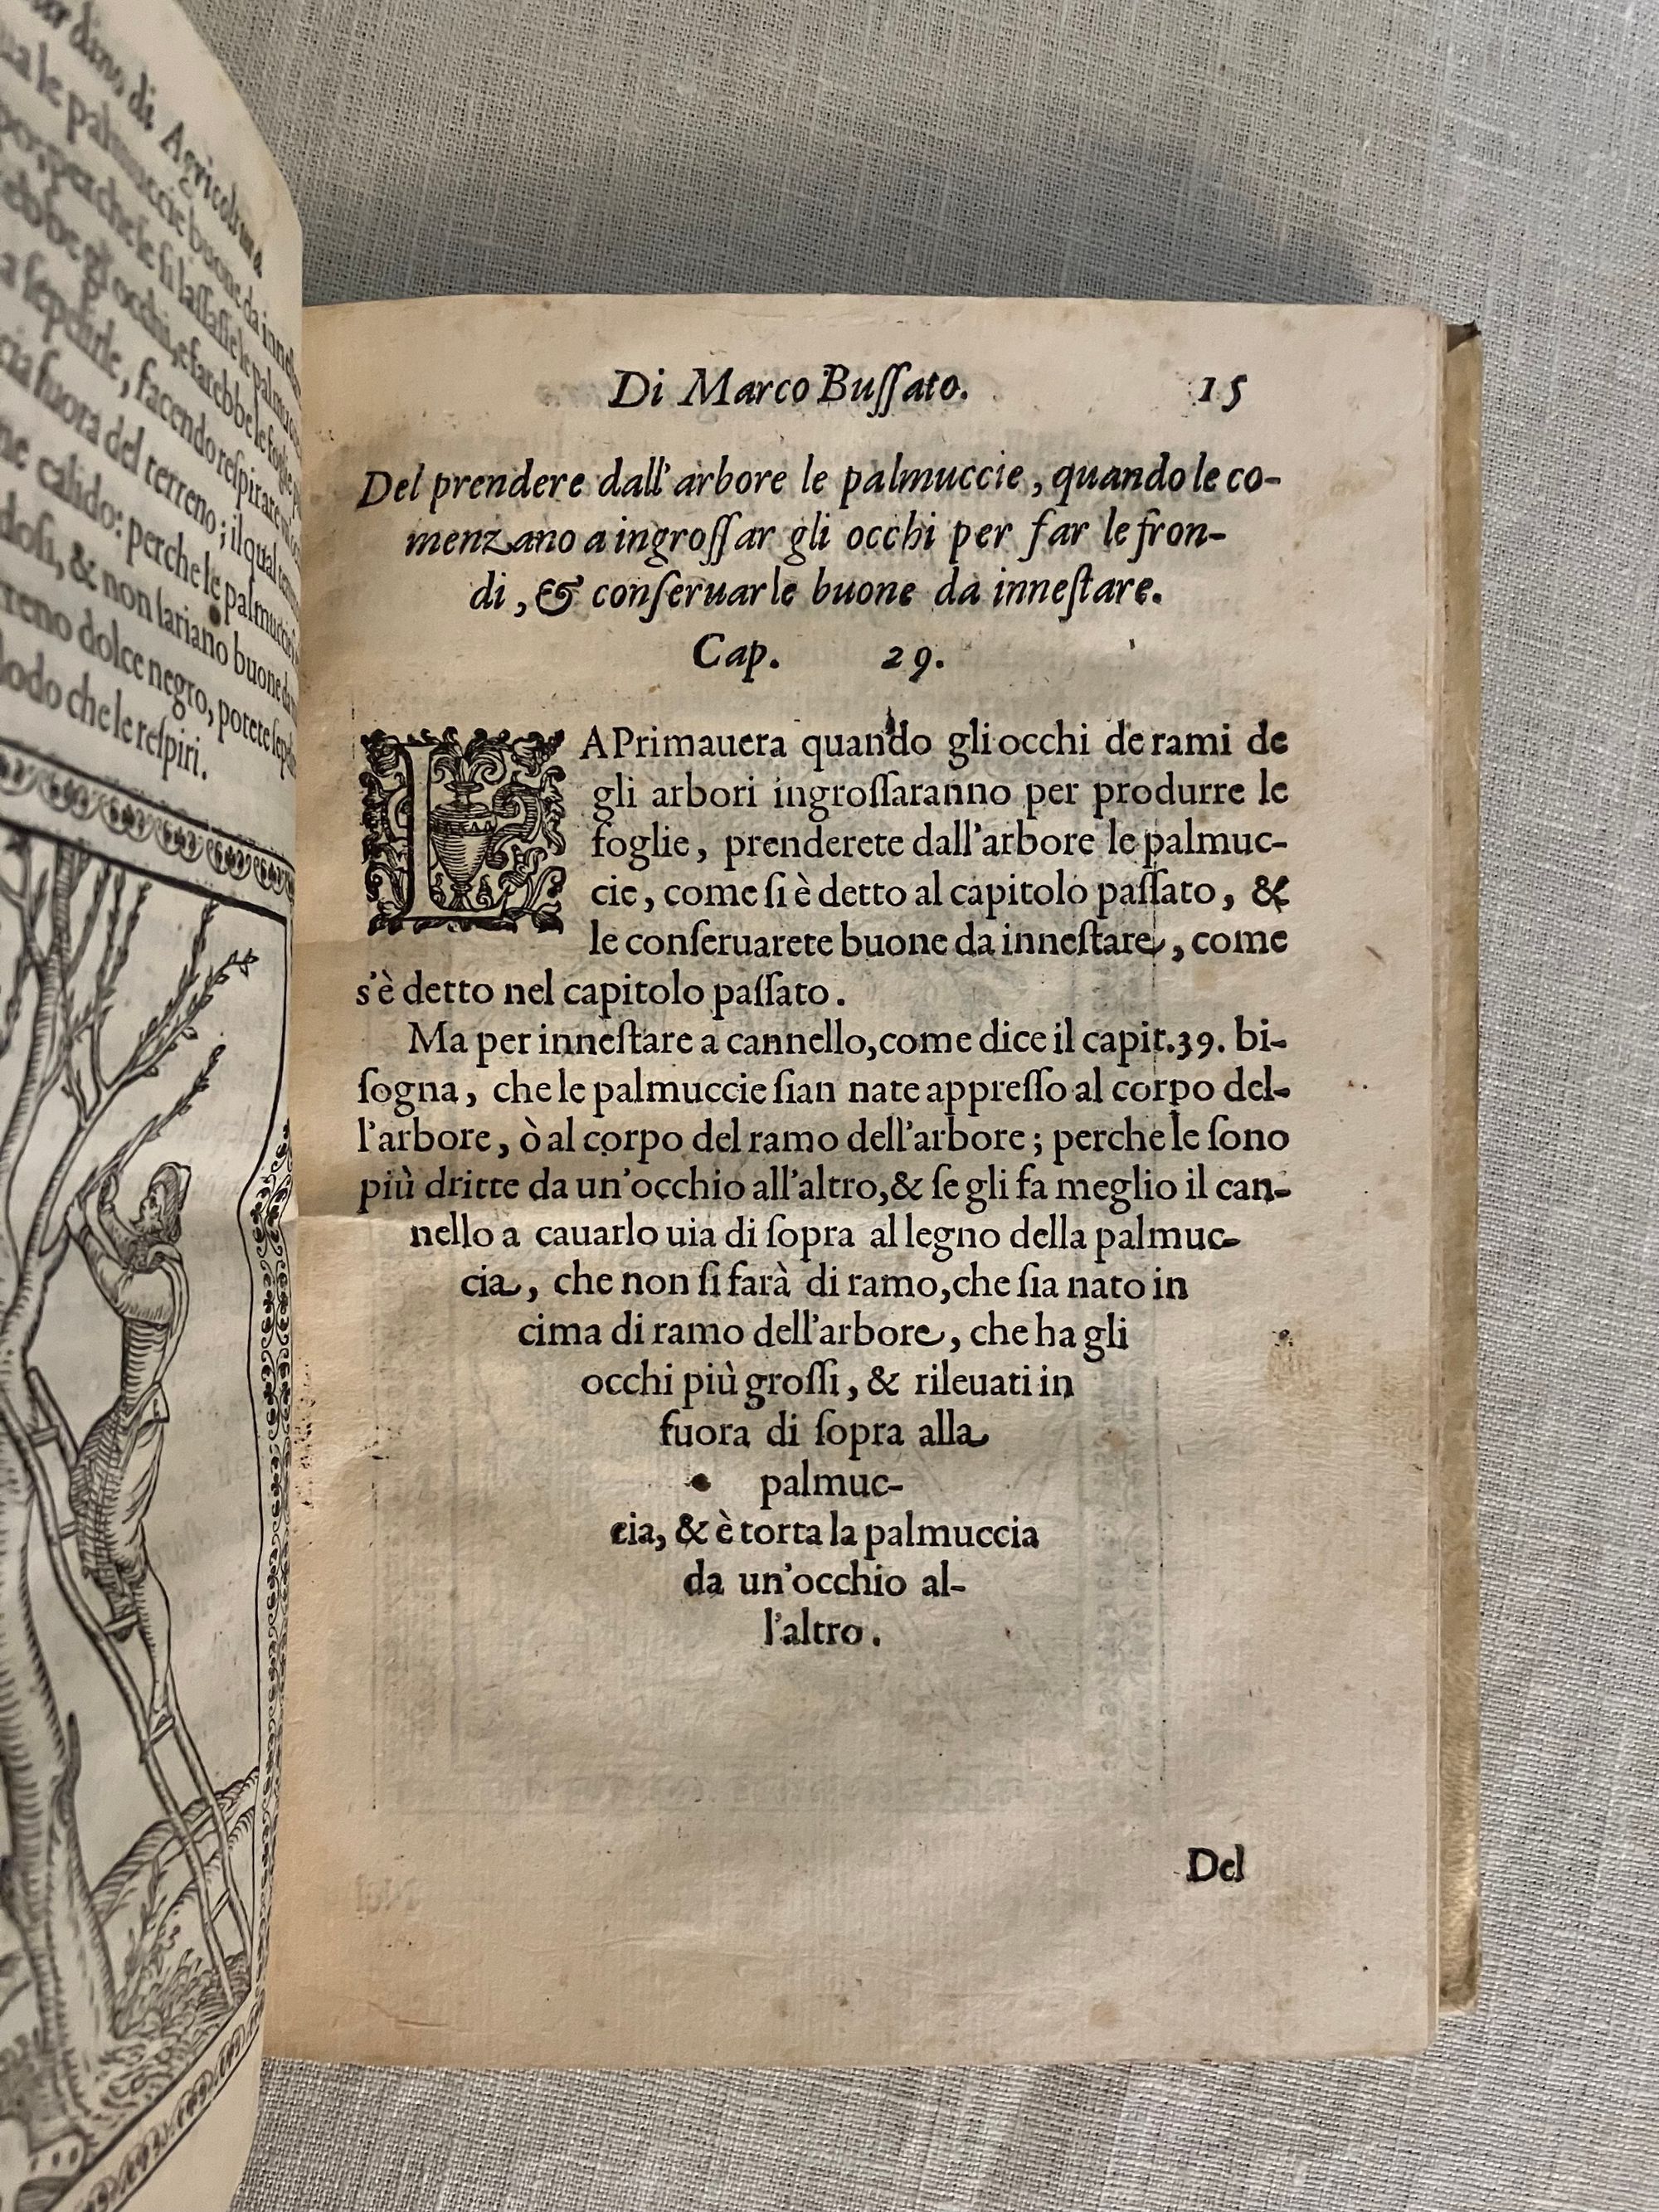 di Agricoltura
le palmuccie buone da
perche se si lassassе le
gli occhi, e farebbe le foglie
sepelirle, facendo respirare
fuora del terreno; il qual
calido: perche le palmuccie
& non sariano buone
dolce negro, potete
che le respiri.
Di Marco Buſſato. 15
Del prendere dall'arbore le palmuccie, quando le co-
menzano a ingroſſar gli occhi per far le fron-
di, & conſeruarle buone da inneſtare.
Cap. 29.
LA Primauera quando gli occhi de rami de
gli arbori ingroſſaranno per produrre le
foglie, prenderete dall'arbore le palmuc-
cie, come ſi è detto al capitolo paſſato, &
le conſeruarete buone da inneſtare, come
s'è detto nel capitolo paſſato.
Ma per inneſtare a cannello, come dice il capit. 39. bi-
ſogna, che le palmuccie ſian nate appreſſo al corpo del-
l'arbore, ò al corpo del ramo dell'arbore; perche le ſono
più dritte da un'occhio all'altro, & ſe gli fa meglio il can-
nello a cauarlo uia di ſopra al legno della palmuc-
cia, che non ſi farà di ramo, che ſia nato in
cima di ramo dell'arbore, che ha gli
occhi più groſſi, & rileuati in
fuora di ſopra alla
palmuc-
cia, & è torta la palmuccia
da un'occhio al-
l'altro.
Del